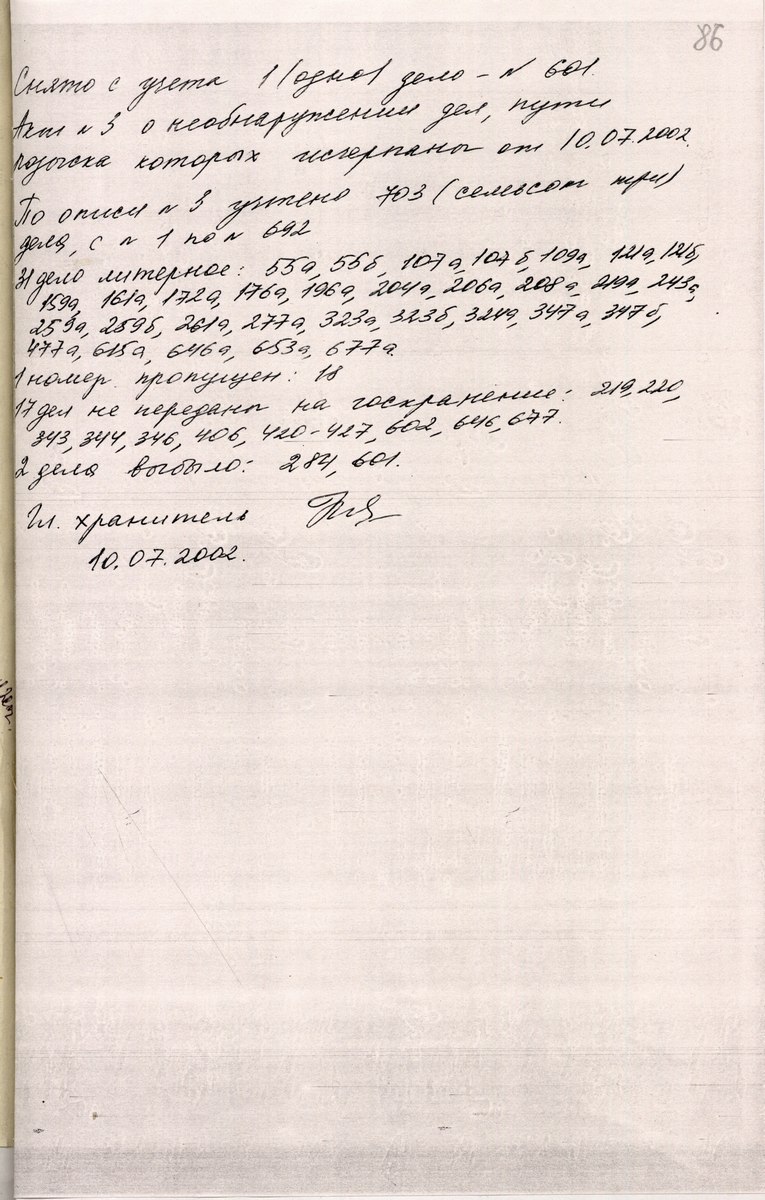 86
Снято с учета 1 (одно) дело - N 601.
Акт N 3 о необнаружении дел, пути
розыска которых исчерпаны от 10.07.2002.
По описи N 3 учтено 703 (семьсот три)
дела, с N 1 по N 692
31 дело литерное: 55а, 55б, 107а, 107б, 109а, 121а, 121б,
159а, 161а, 172а, 176а, 196а, 204а, 206а, 208а, 219а, 243а,
259а, 259б, 261а, 277а, 323а, 323б, 324а, 347а, 347б,
477а, 615а, 646а, 653а, 677а.
1 номер пропущен: 18
17 дел не переданы на госхранение: 219, 220,
343, 344, 346, 406, 420-427, 602, 646, 677.
2 дела выбыло: 284, 601.
Гл. хранитель
10.07.2002.